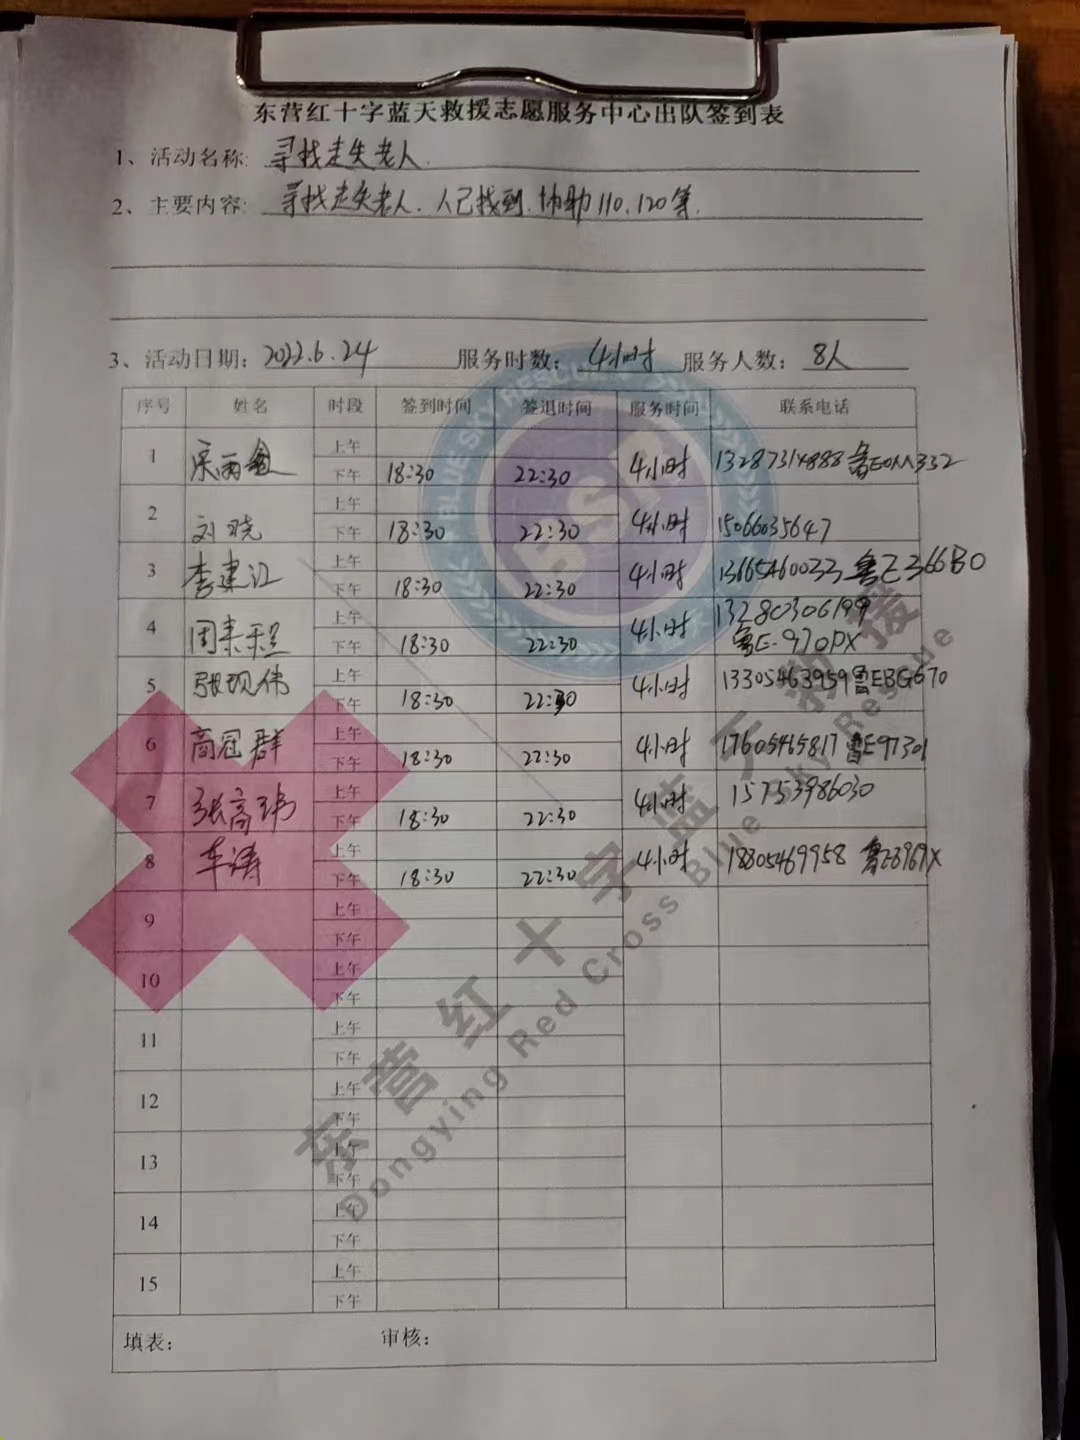 东营红十字蓝天救援志愿服务中心出队签到表
1、活动名称: 寻找走失老人.
2、主要内容: 寻找走失老人.人已找到.协助110.120等.
3、活动日期: 2022.6.24 服务时数: 4小时 服务人数: 8人
序号 姓名 时段 签到时间 签退时间 服务时间 联系电话
1 上午
下午 18:30 22:30 4小时 13287314888
2 刘晓 上午
下午 18:30 22:30 4小时 15066035647
3 李建江 上午
下午 18:30 22:30 4小时 13665460033 鲁E366B0
4 上午
下午 18:30 22:30 4小时 13280306199
鲁E·970PX
5 张现伟 上午
下午 18:30 22:30 4小时 13305463959 鲁EBG670
6 高冠群 上午
下午 18:30 22:30 4小时 17605465817 鲁E97301
7 张高玮 上午
下午 18:30 22:30 4小时 15753986030
8 车涛 上午
下午 18:30 22:30 4小时 18805469958
9 上午
下午
10 上午
下午
11 上午
下午
12 上午
下午
13 上午
下午
14 上午
下午
15 上午
下午
填表: 审核:
BLUE SKY RESCUE
BSR
东营红十字蓝天救援
Dongying Red Cross Blue Sky Rescue